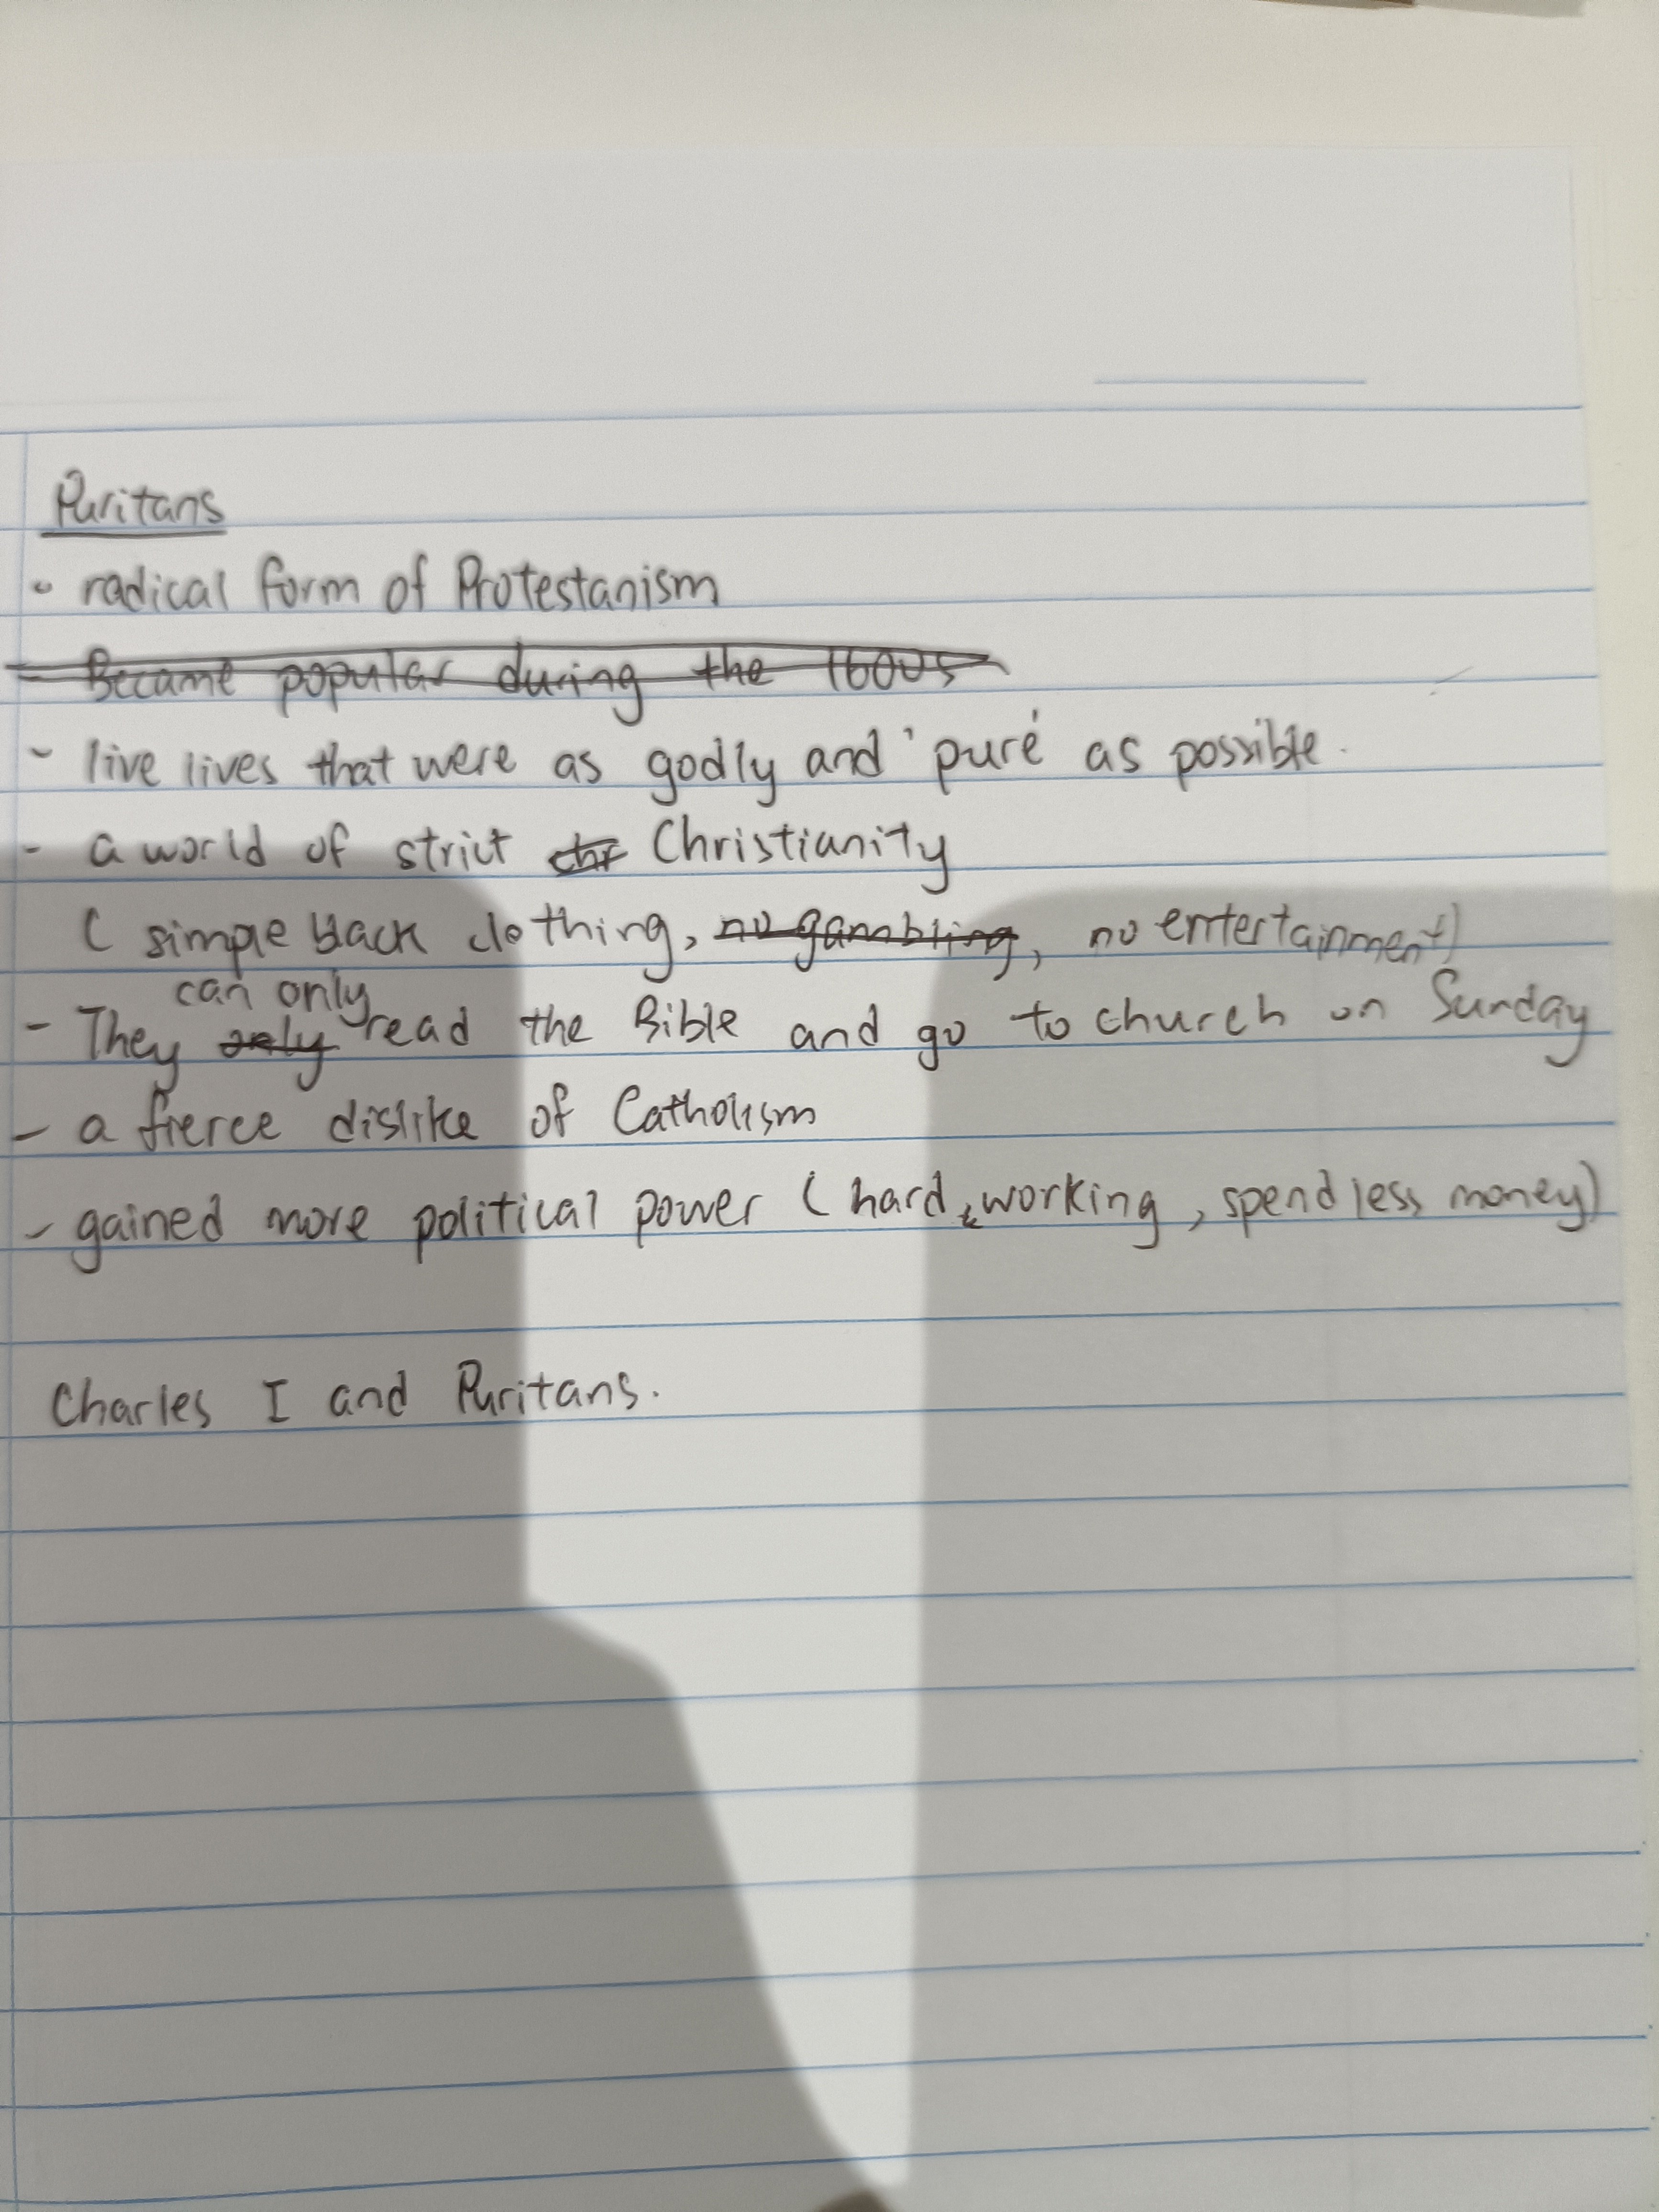 Puritans
- radical form of Protestanism
- Became popular during the 1600s
- live lives that were as godly and 'pure' as possible.
- a world of strict chr Christianity
( simple black clothing, no gambling, no entertainment)
can only
- They only read the Bible and go to church on Sunday
- a fierce dislike of Catholism
- gained more political power ( hard working, spend less money)
Charles I and Puritans.